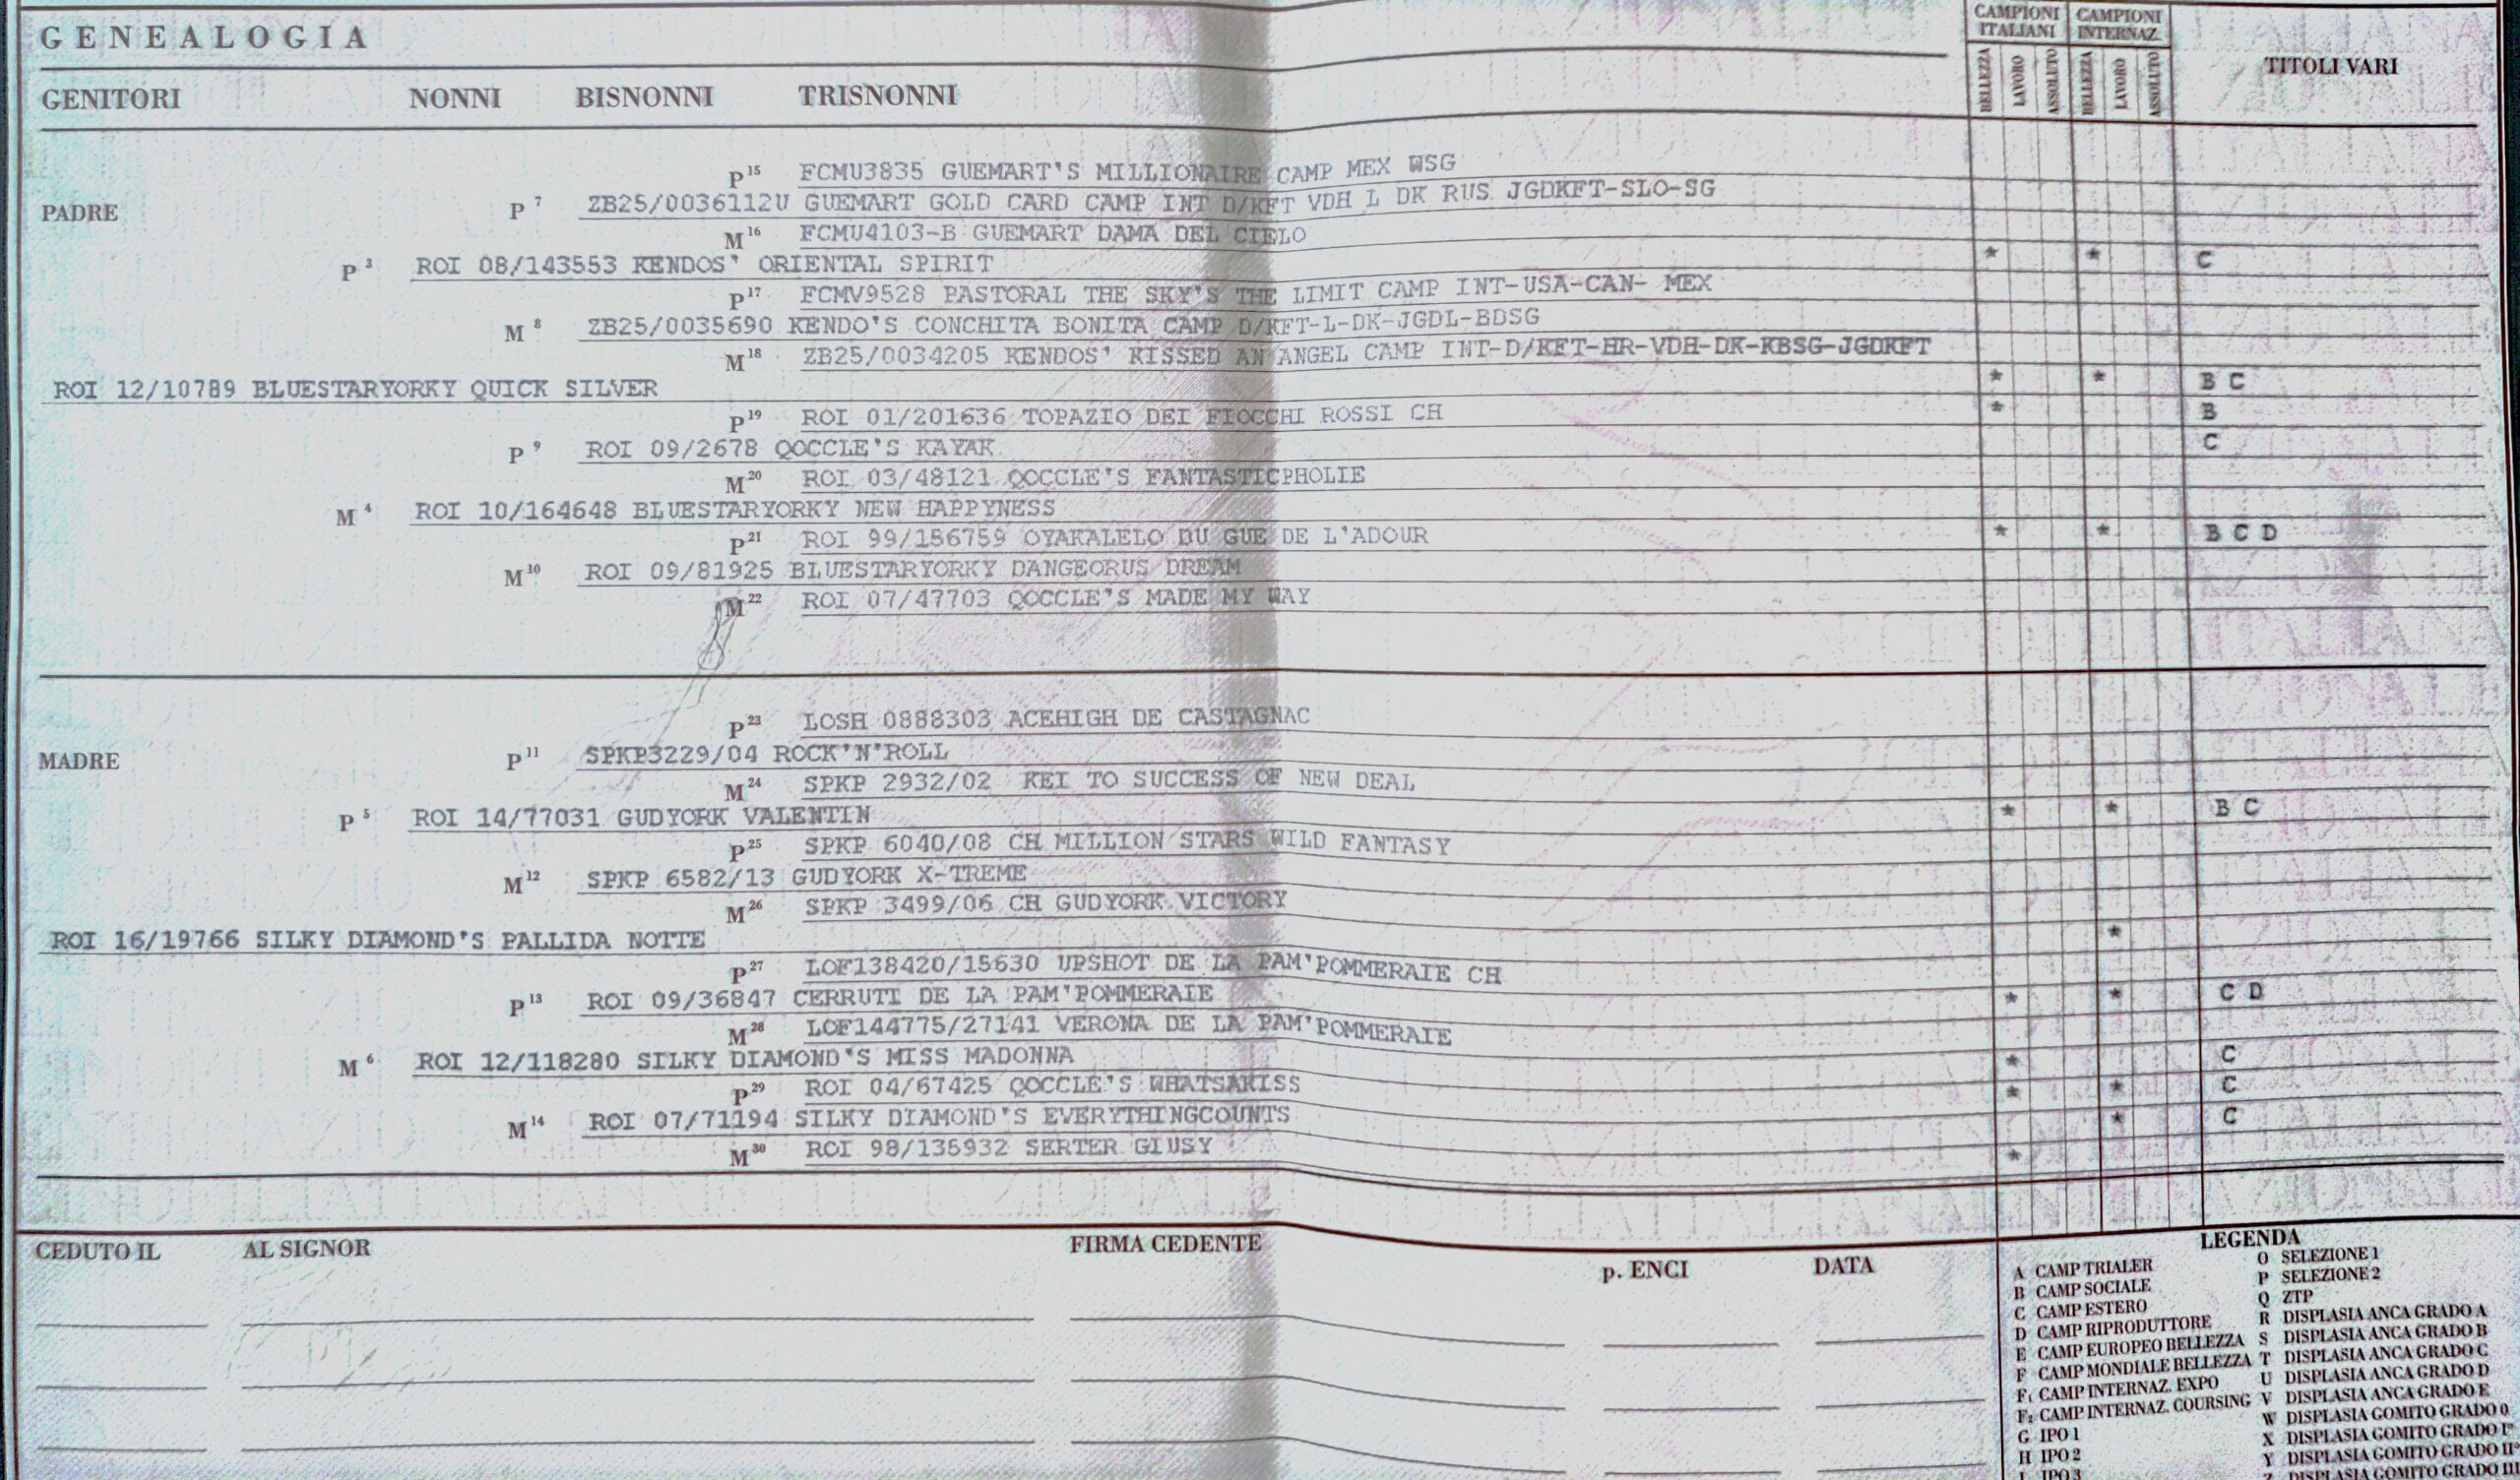 GENEALOGIA
CAMPIONI ITALIANI
CAMPIONI INTERNAZ.
TITOLI VARI
BELLEZZA LAVORO ASSOLUTO BELLEZZA LAVORO ASSOLUTO
GENITORI NONNI BISNONNI TRISNONNI
P15 FCMU3835 GUEMART'S MILLIONAIRE CAMP MEX WSG
PADRE P7 ZB25/0036112U GUEMART GOLD CARD CAMP INT D/KFT VDH L DK RUS JGDKFT-SLO-SG
M16 FCMU4103-B GUEMART DAMA DEL CIELO
P3 ROI 08/143553 KENDOS' ORIENTAL SPIRIT * * C
P17 FCMV9528 PASTORAL THE SKY'S THE LIMIT CAMP INT-USA-CAN- MEX
M8 ZB25/0035690 KENDO'S CONCHITA BONITA CAMP D/KFT-L-DK-JGDL-BDSG
M18 ZB25/0034205 KENDOS' KISSED AN ANGEL CAMP INT-D/KFT-HR-VDH-DK-KBSG-JGDKFT
ROI 12/10789 BLUESTARYORKY QUICK SILVER * * B C
P19 ROI 01/201636 TOPAZIO DEI FIOCCHI ROSSI CH * B
P9 ROI 09/2678 QOCCLE'S KAYAK C
M20 ROI 03/48121 QOCCLE'S FANTASTICPHOLIE
M4 ROI 10/164648 BLUESTARYORKY NEW HAPPYNESS
P21 ROI 99/156759 OYAKALELO DU GUE DE L'ADOUR * * B C D
M10 ROI 09/81925 BLUESTARYORKY DANGEORUS DREAM
M22 ROI 07/47703 QOCCLE'S MADE MY WAY
P23 LOSH 0888303 ACEHIGH DE CASTAGNAC
MADRE P11 SPKP3229/04 ROCK'N'ROLL
M24 SPKP 2932/02 KEI TO SUCCESS OF NEW DEAL
P5 ROI 14/77031 GUDYORK VALENTIN * * B C
P25 SPKP 6040/08 CH MILLION STARS WILD FANTASY
M12 SPKP 6582/13 GUDYORK X-TREME
M26 SPKP 3499/06 CH GUDYORK VICTORY
ROI 16/19766 SILKY DIAMOND'S PALLIDA NOTTE *
P27 LOF138420/15630 UPSHOT DE LA PAM'POMMERAIE CH
P13 ROI 09/36847 CERRUTI DE LA PAM'POMMERAIE * * C D
M28 LOF144775/27141 VERONA DE LA PAM'POMMERAIE
M6 ROI 12/118280 SILKY DIAMOND'S MISS MADONNA * C
P29 ROI 04/67425 QOCCLE'S WHATSAKISS * * C
M14 ROI 07/71194 SILKY DIAMOND'S EVERYTHINGCOUNTS * C
M30 ROI 98/135932 SERTER GIUSY *
CEDUTO IL AL SIGNOR FIRMA CEDENTE p. ENCI DATA
LEGENDA
A CAMP TRIALER
B CAMP SOCIALE
C CAMP ESTERO
D CAMP RIPRODUTTORE
E CAMP EUROPEO BELLEZZA
F CAMP MONDIALE BELLEZZA
F1 CAMP INTERNAZ. EXPO
F2 CAMP INTERNAZ. COURSING
G IPO 1
H IPO 2
I IPO 3
O SELEZIONE 1
P SELEZIONE 2
Q ZTP
R DISPLASIA ANCA GRADO A
S DISPLASIA ANCA GRADO B
T DISPLASIA ANCA GRADO C
U DISPLASIA ANCA GRADO D
V DISPLASIA ANCA GRADO E
W DISPLASIA GOMITO GRADO 0
X DISPLASIA GOMITO GRADO I°
Y DISPLASIA GOMITO GRADO II°
Z DISPLASIA GOMITO GRADO III